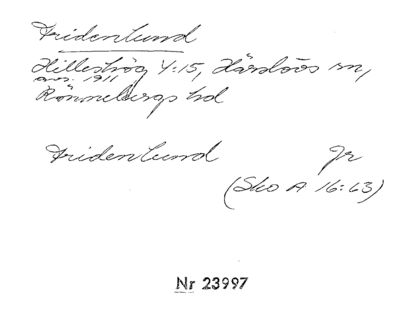 Fridenlund
Hilleshög 4:15, Härslövs sn,
avs. 1911
Rönnebergs hd
Fridenlund Jr
(Sko A 16:63)
Nr 23997